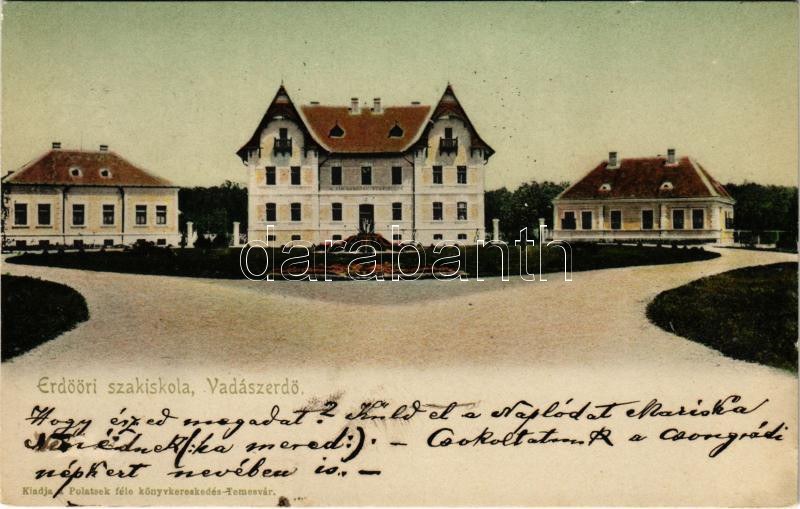 darabanth
Erdööri szakiskola, Vadászerdö.
Hogy észed megadat? Küld el a Naplódat Mariska
Nénédnek (:ha mered:). — Csokoltatunk a csongrádi
népkert nevében is. —
Kiadja a Polatsek féle könyvkereskedés-Temesvár.